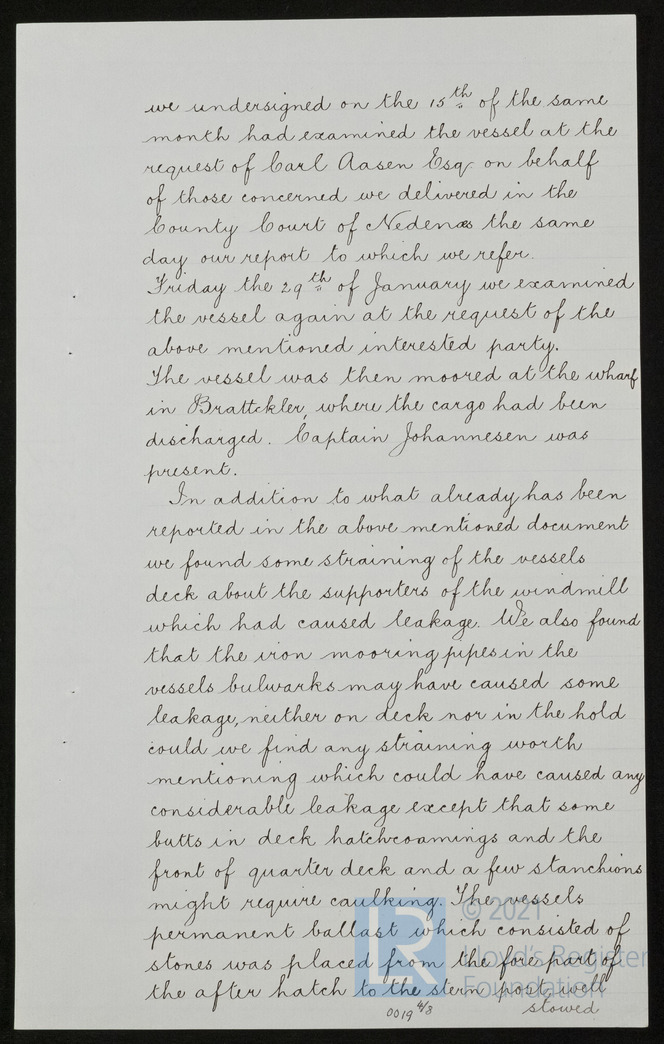 we undersigned on the 15th of the same
month had examined the vessel at the
request of Carl Aasen Esq. on behalf
of those concerned we delivered in the
County Court of Nedenæs the same
day our report to which we refer.
Friday the 29th of January we examined
the vessel again at the request of the
above mentioned interested party.
The vessel was then moored at the wharf
in Brattekler, where the cargo had been
discharged. Captain Johannesen was
present.
In addition to what already has been
reported in the above mentioned document
we found some straining of the vessels
deck about the supporters of the windmill
which had caused leakage. We also found
that the iron mooring pipes in the
vessels bulwarks may have caused some
leakage, neither on deck nor in the hold
could we find any straining worth
mentioning which could have caused any
considerable leakage except that some
butts in deck hatchcoamings and the
front of quarter deck and a few stanchions
might require caulking. The vessels
permanent ballast which consisted of
stones was placed from the fore part of
the after hatch to the stern post, well
stowed
0019 4/8
LR
© 2021
Lloyd's Register
Foundation